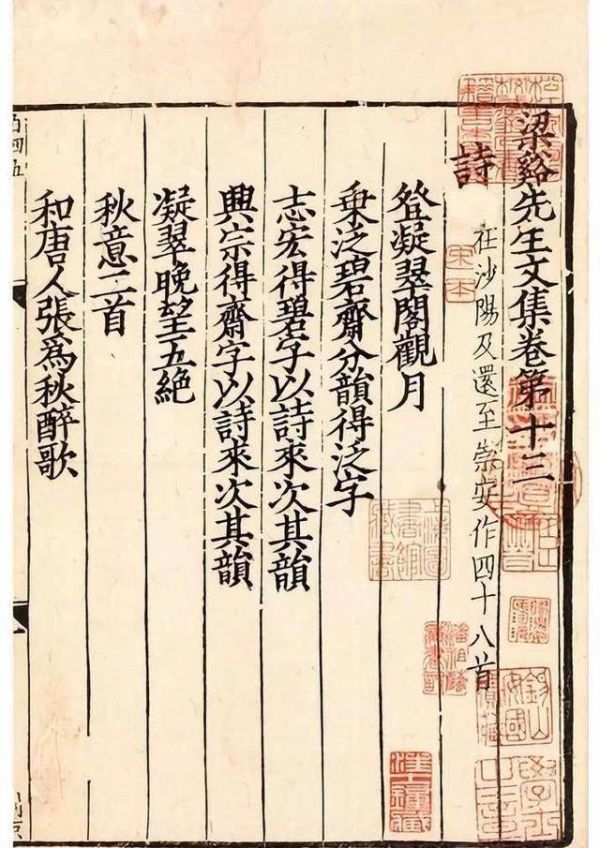 梁谿先生文集卷第十三
詩 在沙陽及還至崇安作四十八首
登凝翠閣觀月
乗泛碧齋分韻得泛字
志宏得碧字以詩來次其韻
興宗得齋字以詩來次其韻
凝翠晚望五絶
秋意二首
和唐人張爲秋醉歌
宋本
上海圖書館藏書
潘祖蔭藏書記